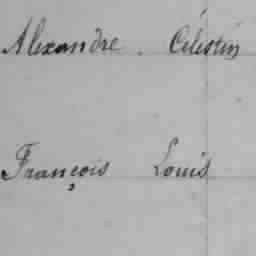 Alexandre. Célestin
François Louis